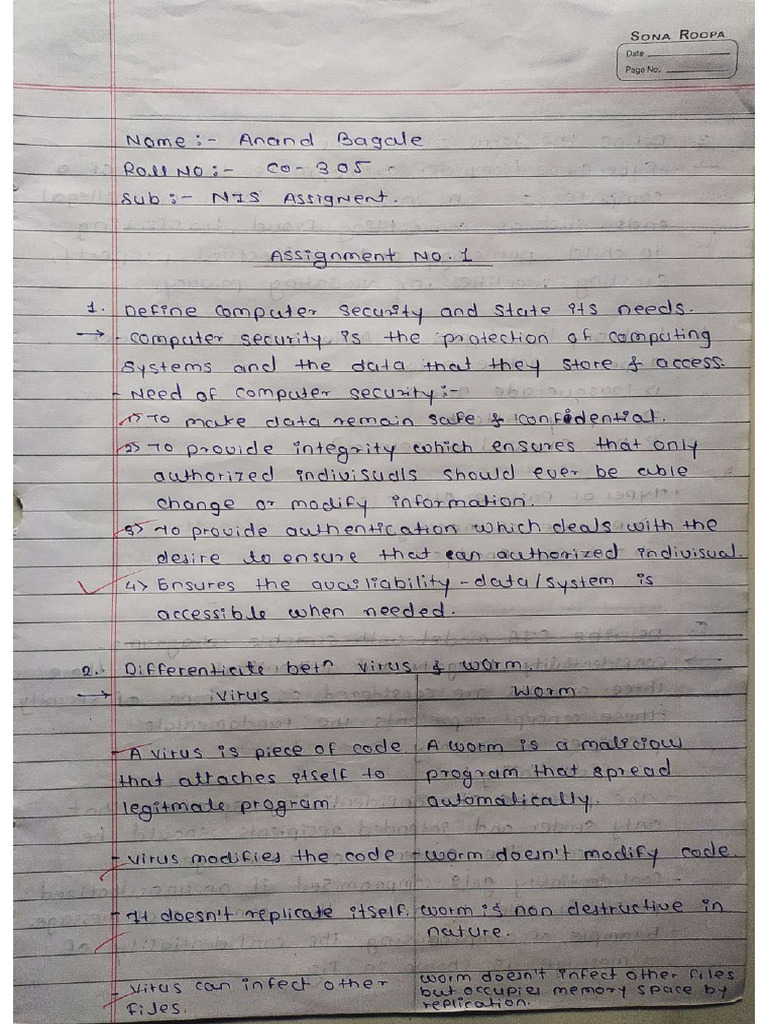 SONA ROOPA
Date
Page No.
Name :- Anand Bagale
Roll NO :- CO-305
Sub :- NIS Assignent.
Assignment NO. 1
1. Define computer security and state its needs.
→ - computer security is the protection of computing
systems and the data that they store & access.
- Need of computer security :-
1) To make data remain safe & confidential.
2) To provide integrity which ensures that only
authorized indivisudls should ever be able
change or modify information.
3) To provide authentication which deals with the
desire to ensure that can authorized indivisual.
4) Ensures the availiability - data/system is
accessible when needed.
2. Differenticate betn virus & worm.
→ virus worm
- A virus is piece of code A worm is a malicious
that attaches itself to program that spread
legitmate program. automatically.
- virus modifies the code - worm doesn't modify code.
- It doesn't replicate itself. worm is non destructive in
nature.
- virus can infect other worm doesn't infect other files
files. but occupies memory space by
replication.